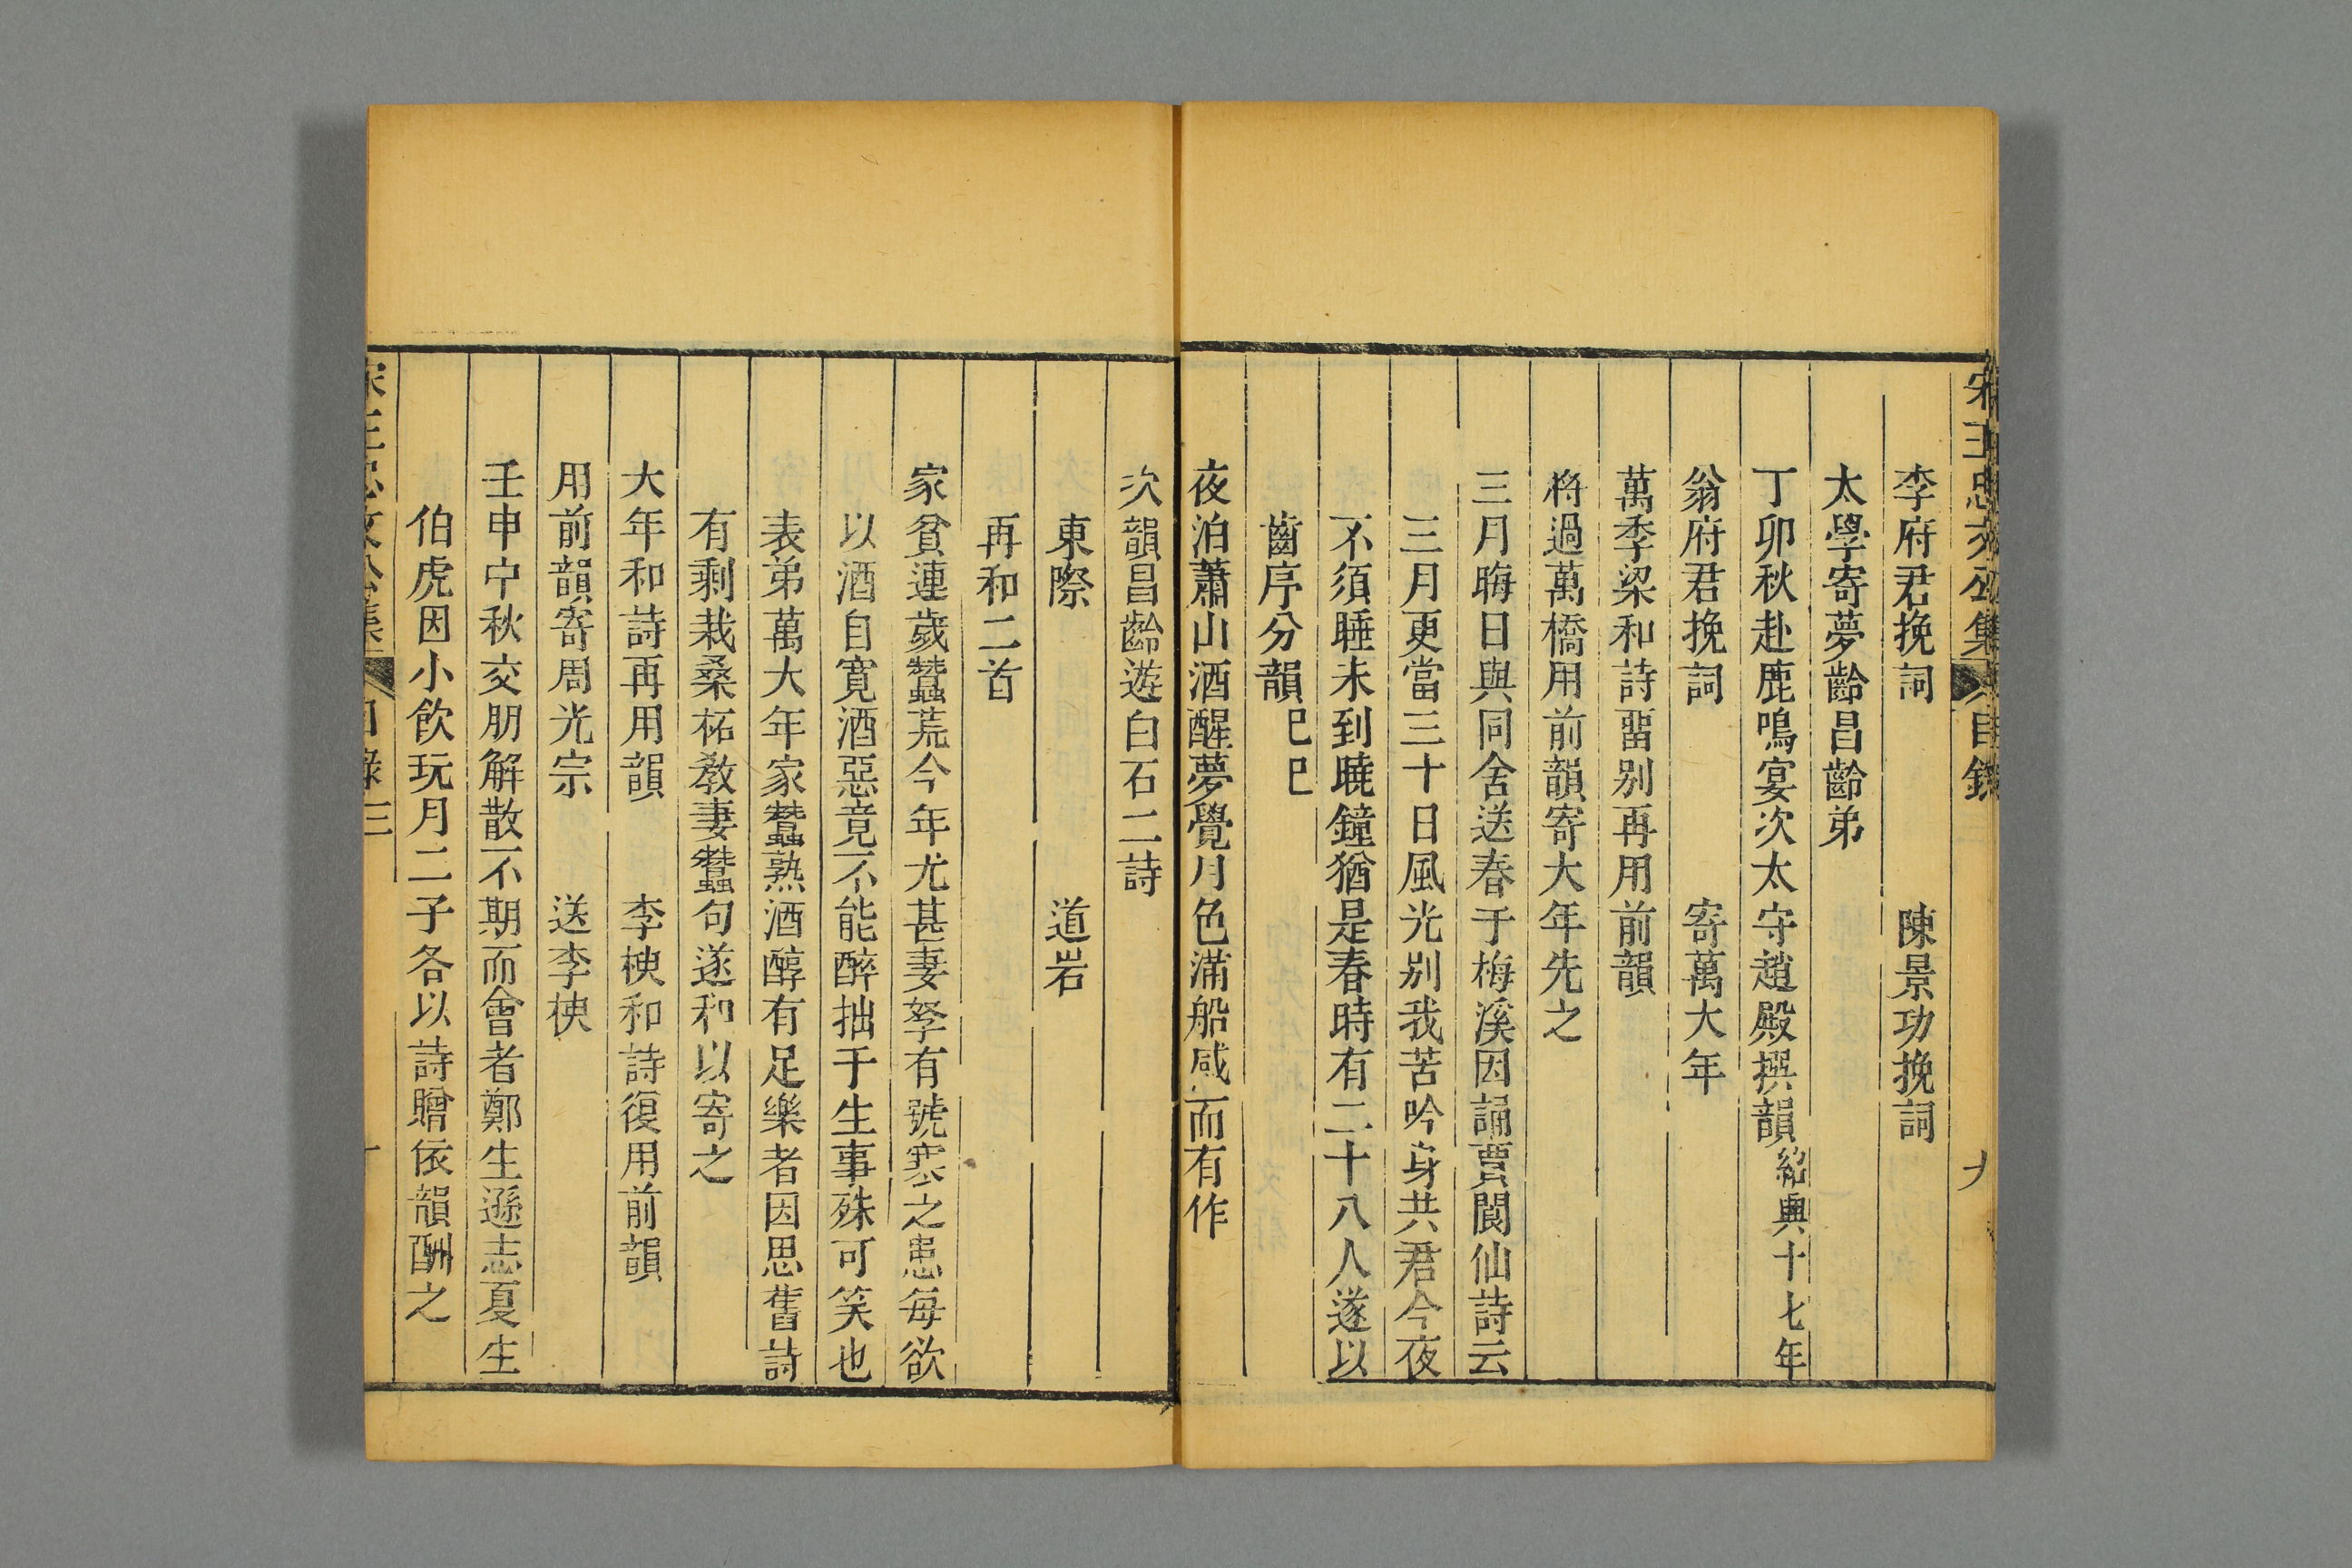 宋王忠文公集 目錄 九
李府君挽詞 陳景功挽詞
太學寄夢齡昌齡弟
丁卯秋赴鹿鳴宴次太守趙殿撰韻紹興十七年
翁府君挽詞 寄萬大年
萬季梁和詩畱别再用前韻
將過萬橋用前韻寄大年先之
三月晦日與同舍送春于梅溪因誦賈閬仙詩云
三月更當三十日風光别我苦吟身共君今夜
不須睡未到曉鐘猶是春時有二十八人遂以
齒序分韻己巳
夜泊蕭山酒醒夢覺月色滿船感而有作
次韻昌齡遊白石二詩
東際 道岩
再和二首
家貧連歲蠶荒今年尤甚妻孥有號寒之患每欲
以酒自寛酒惡竟不能醉拙于生事殊可笑也
表弟萬大年家蠶熟酒醇有足樂者因思舊詩
有剩栽桑柘教妻蠶句遂和以寄之
大年和詩再用韻 李㭕和詩復用前韻
用前韻寄周光宗 送李㭕
壬申中秋交朋解散不期而會者鄭生遜志夏生
伯虎因小飲玩月二子各以詩贈依韻酬之
宋王忠文公集 目錄三 十